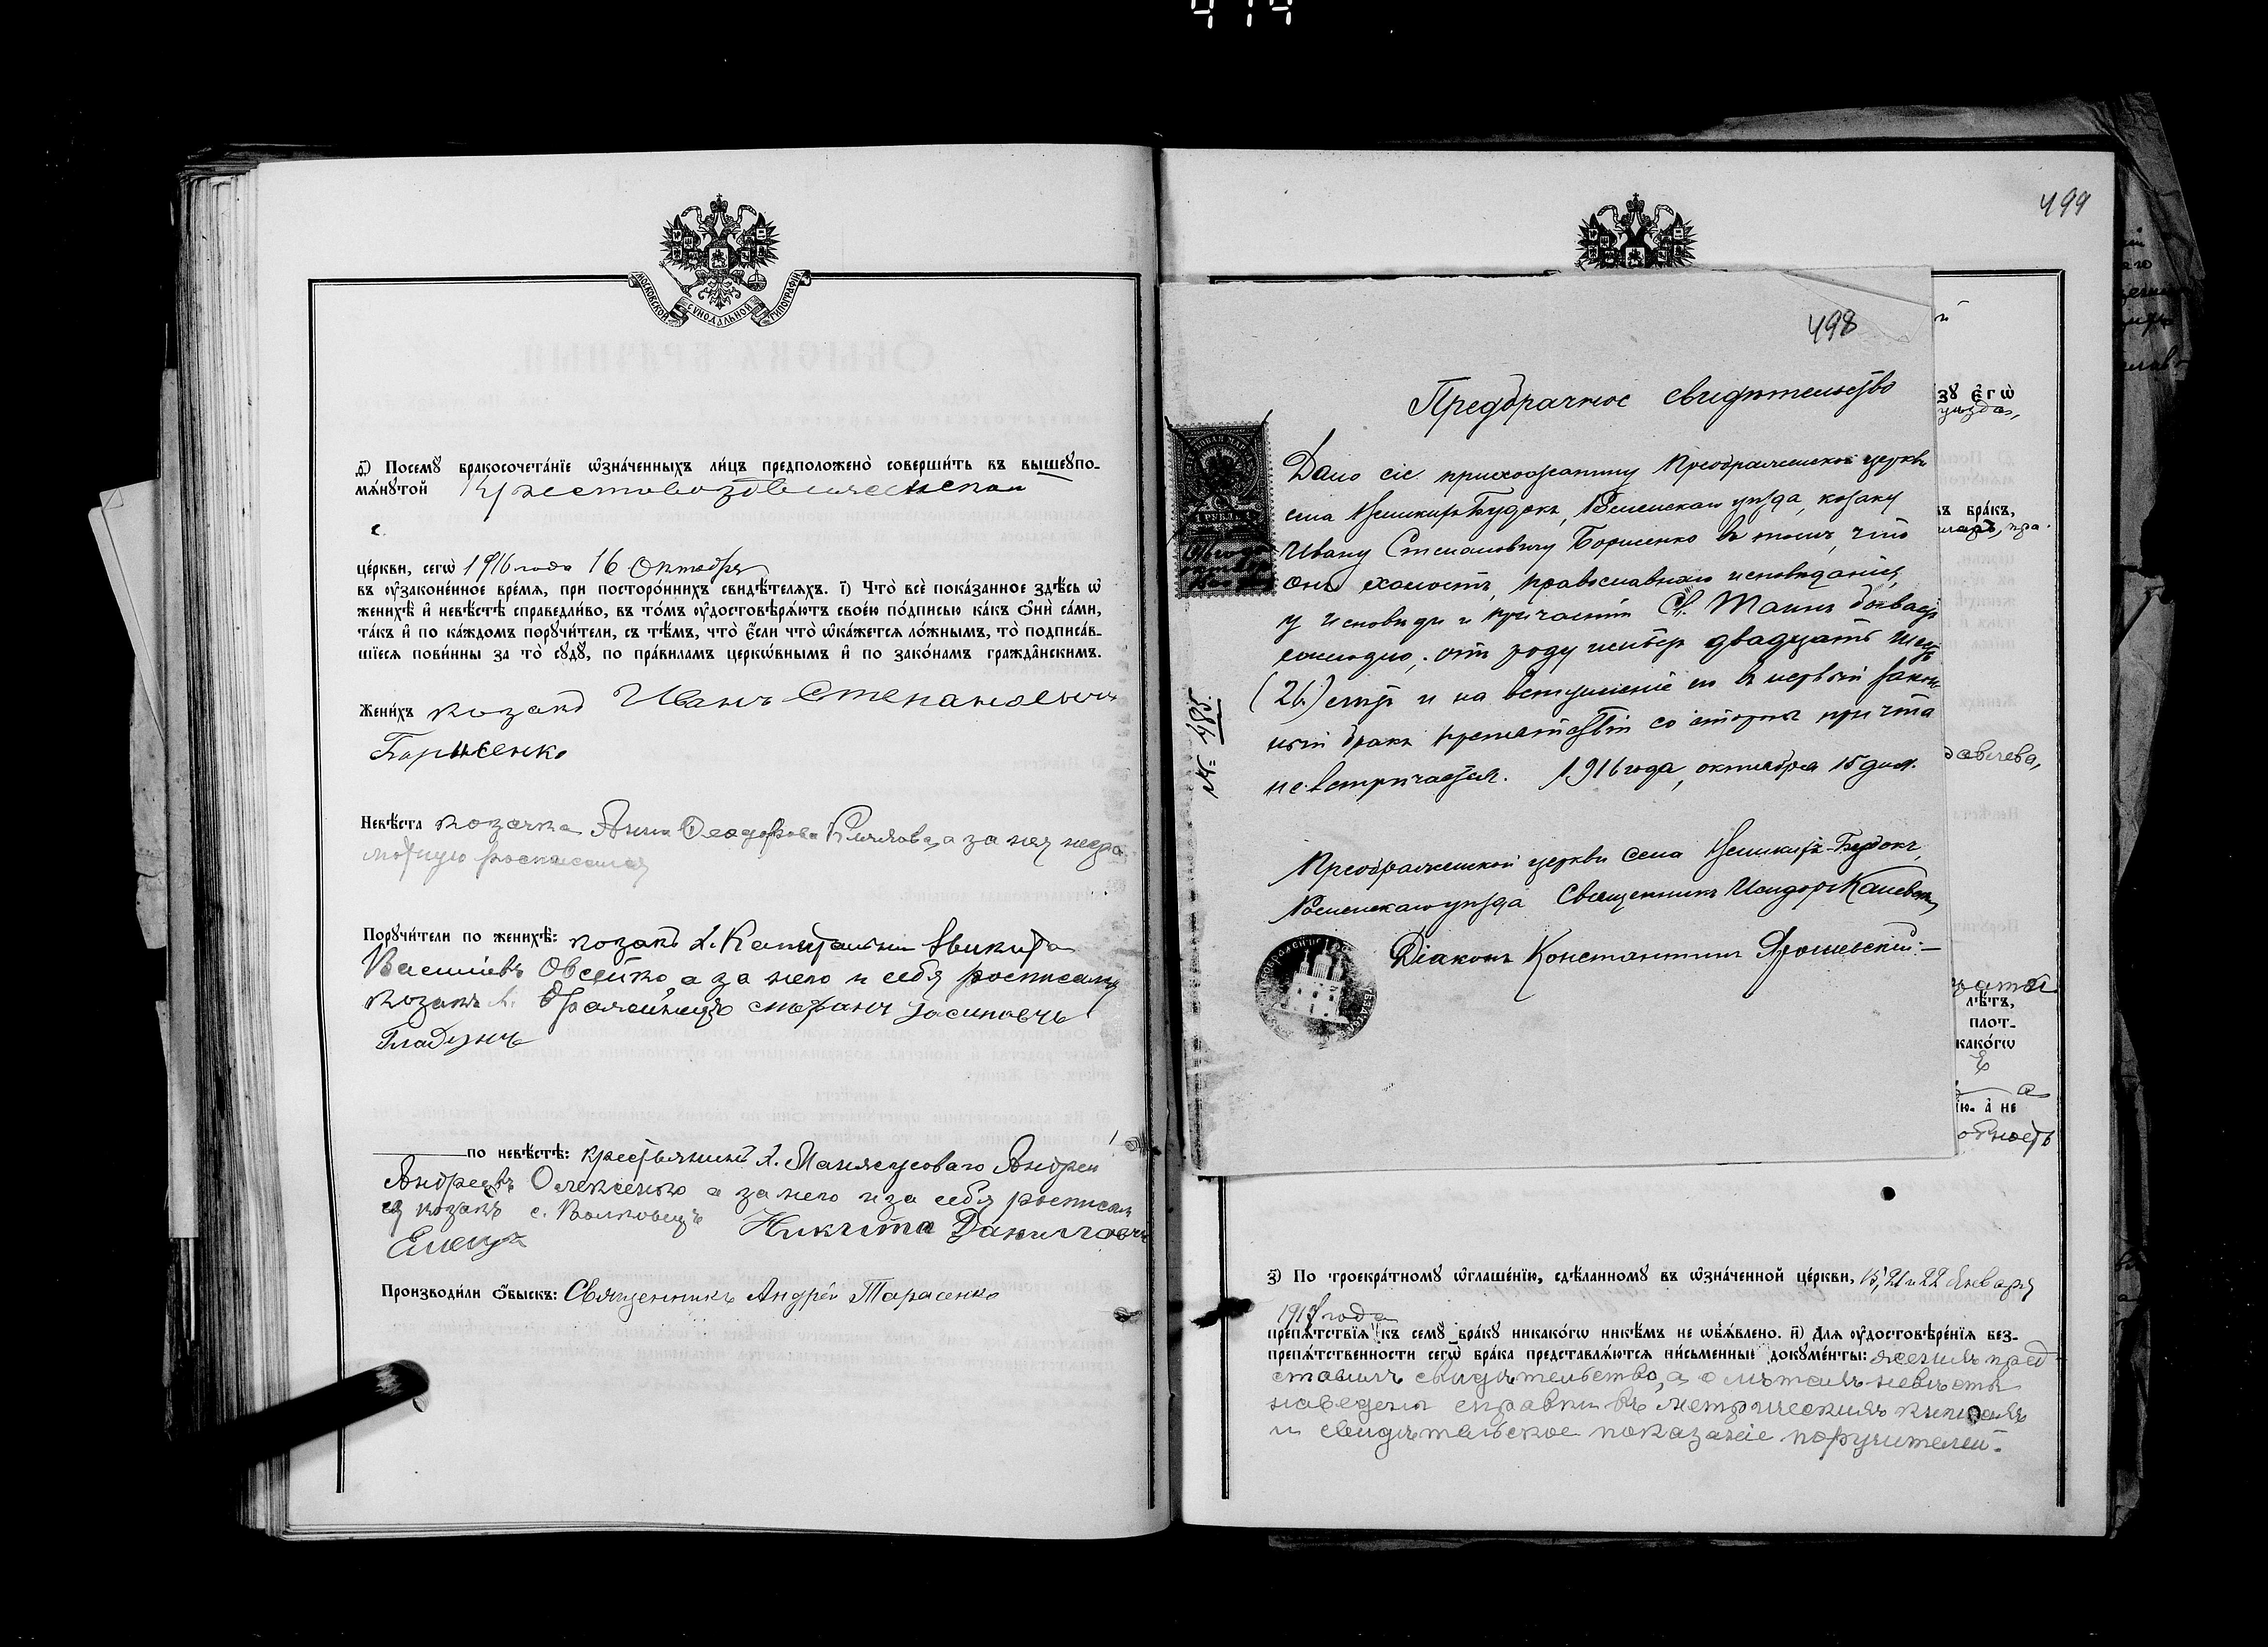 МОСКОВСКОЙ СУНОДАЛЬНОЙ ТИПОГРАФІИ
Посемꙋ бракосочета́нїе ѡ҆зна́ченныхъ ли́цъ предположено̀ соверши́ть въ вышеꙋпо-
мѧ́нꙋтой Крестовоздвиженской
с
це́ркви, сегѡ̀ 1916 года 16 Октября
въ ᲂу҆зако́не́нное вре́мѧ, при посторо́ннихъ свидѣ́телѧхъ. і҃) Что̀ всѐ пока́занное здѣ́сь ѡ҆
женихѣ̀ и҆ невѣ́стѣ справедли́во, въ то́мъ ᲂу҆достовѣрѧ́ютъ свое́ю по́дписью ка́къ ѻ҆нѝ са́ми,
та́къ и҆ по ка́ждомъ порꙋчи́тели, съ тѣ́мъ, что̀ є҆́сли что̀ ѡ҆ка́жетсѧ ло́жнымъ, то̀ подписа́в-
шїесѧ пови́нны за то̀ сꙋдꙋ̀, по пра́виламъ церкѡ́внымъ и҆ по зако́намъ гражда̑нскимъ.
Жени́хъ козакъ Иванъ Степановичъ
Борисенко
Невѣ́ста козачка Анна Феодорова а за нея негра
мотную росписался
Порꙋчи́тели по женихѣ̀: козакъ х. Никита
Василіевъ Овсейко, а за него и себя росписался
козакъ Стефанъ Іосиповъ
Гладунъ
по невѣ́стѣ: крестьянинъ х. Андрей
Андреевъ Олексенко а за него и за себя росписал
ся козакъ с. Волковецъ Никита Даниловъ
Емецъ
Производи́ли ѻ҆́быскъ: Священникъ Андрей Тарасенко
499
498
Предбрачное свидѣтельство
Дано сіе прихожанину Преображенской церкви
села Будокъ, Роменскаго уѣзда, козаку
Ивану Степановичу Борисенко въ томъ, что
онъ холостъ, православнаго исповѣданія,
у исповѣди и причастія Св. Таинъ бываетъ
ежегодно, отъ роду имѣетъ двадцать шесть
(26) лѣтъ и на вступленіе его въ первый закон-
ный бракъ препятствій со стороны причта
не встрѣчается. 1916 года, октября 15 дня.
№ 185.
Преображенской церкви села Будокъ,
Роменскаго уѣзда Священникъ Исидоръ Каневскій
Діаконъ Константинъ Ярошевскій.
1 РУБЛЬ
зꙋ є҆гѡ̀
уѣзда,
въ бра́къ,
лѣ́тъ,
плот-
како́гѡ
а҆ не
з҃) По троекра́тномꙋ ѡ҆глаше́нїю, сдѣ́ланномꙋ въ ѡ҆зна́ченной це́ркви, 15, 21 и 22 Января
1917 года
препѧ́тствїѧ къ семꙋ̀ бра́кꙋ никако́гѡ никѣ́мъ не ѡ҆б̾ѧ́влено. и҃) Длѧ ᲂу҆достовѣре́нїѧ без-
препѧ́тственности сегѡ̀ бра́ка представлѧ́ютсѧ пи́сьменные докꙋме́нты: женихъ пред-
ставилъ свидѣтельство, а о лѣтахъ невѣсты
наведены справки въ метрическихъ книгахъ
и свидѣтельское показаніе поручителей.